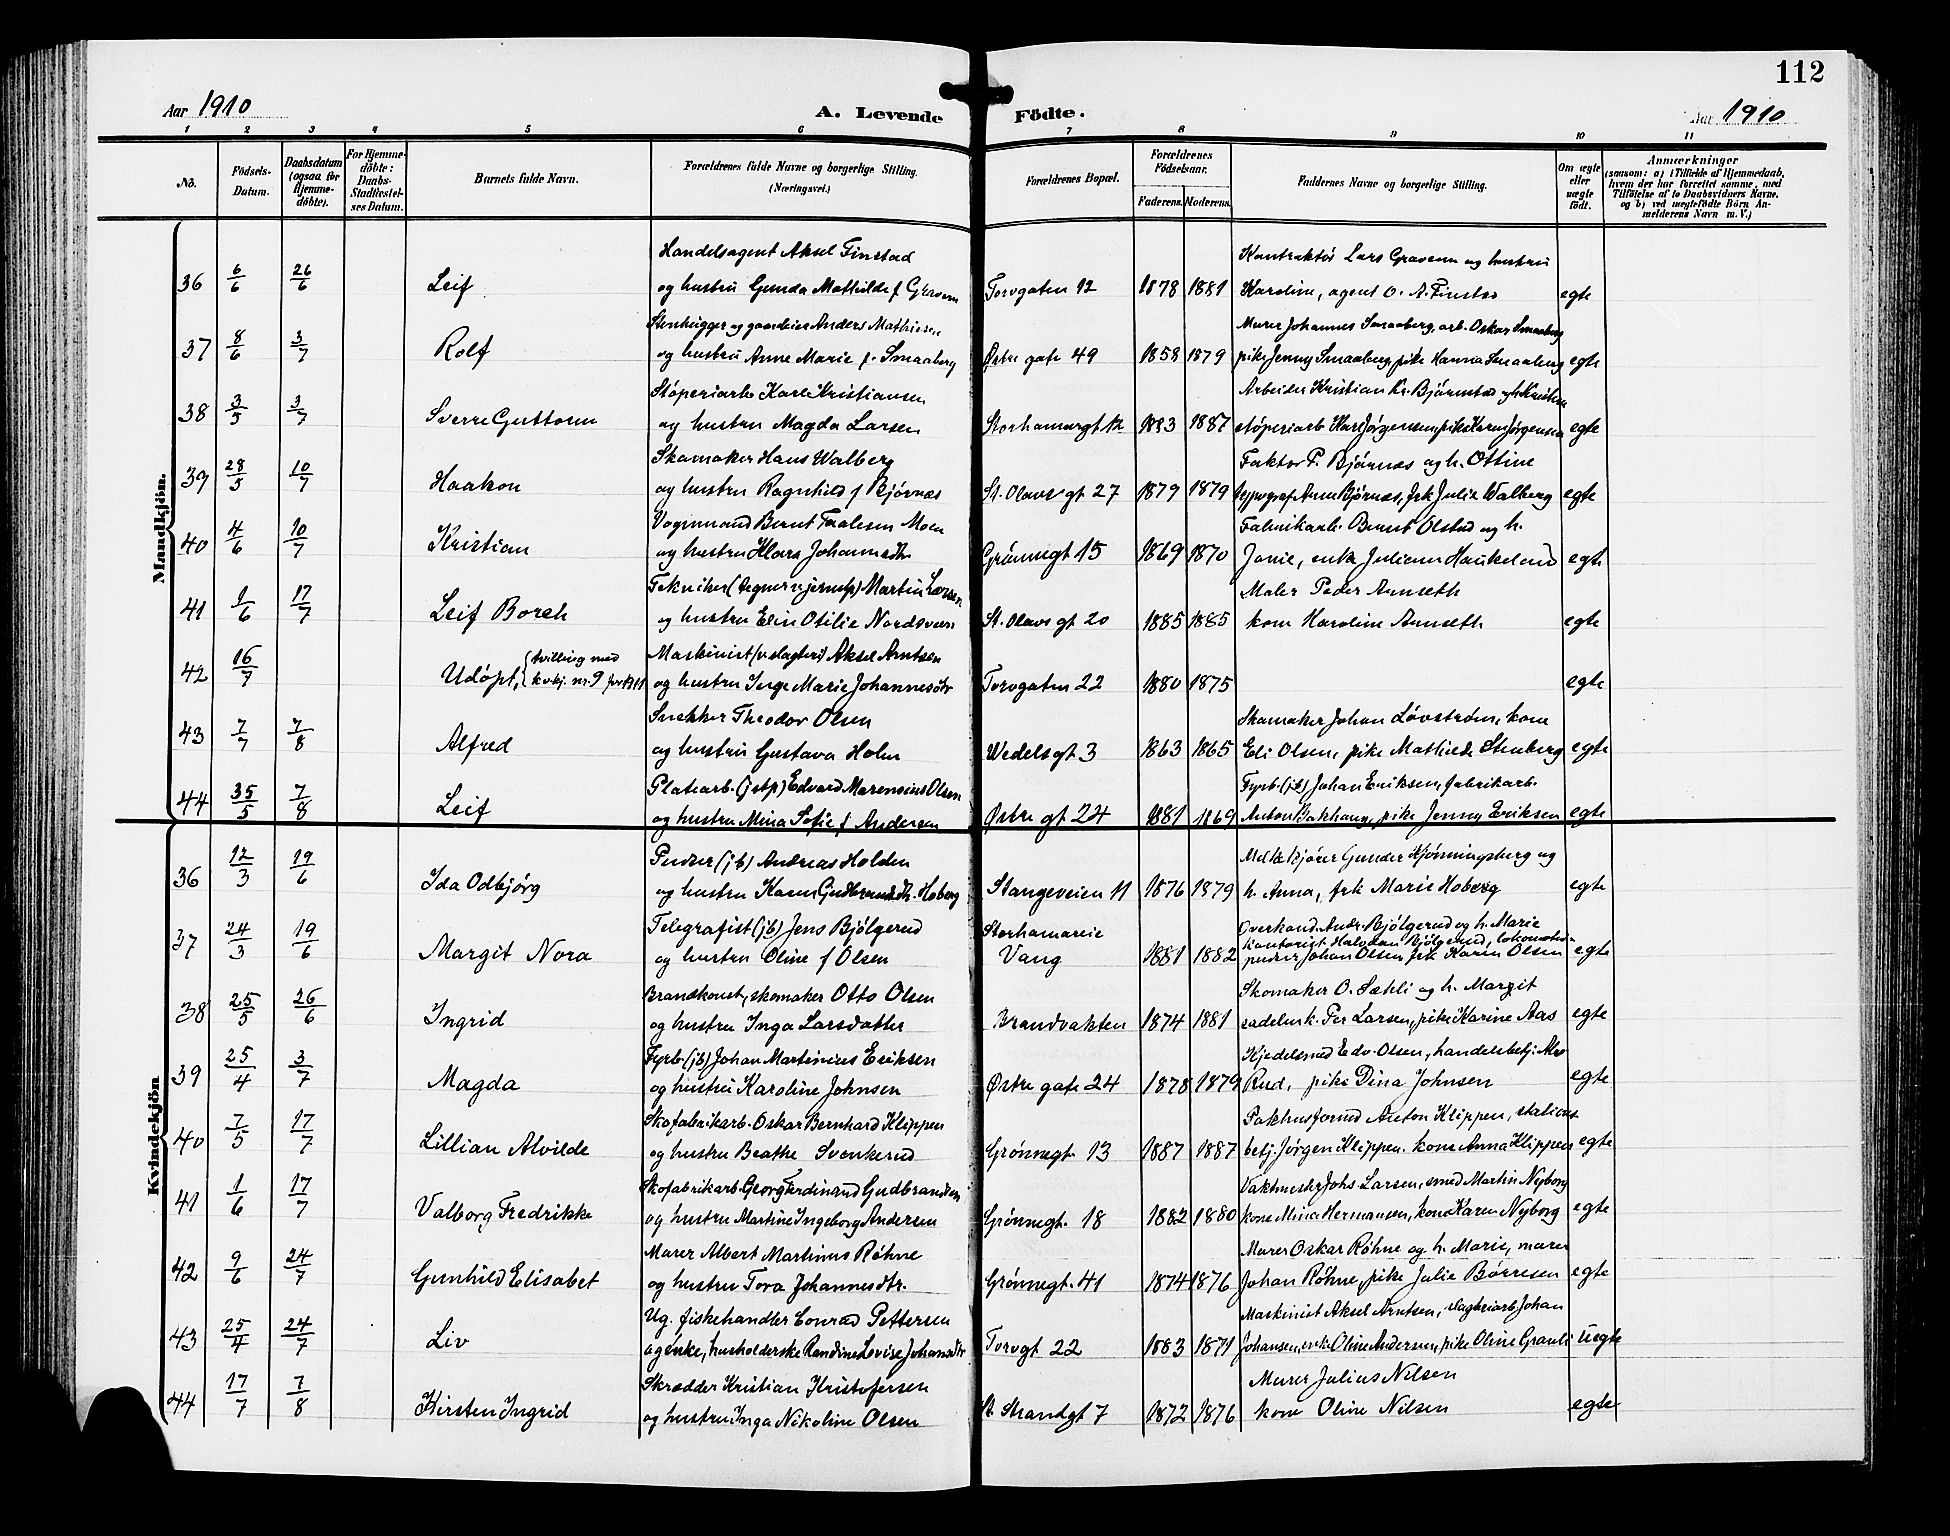 112
Aar 1910
A. Levende Födte.
Aar 1910
1 2 3 4 5 6 7 8 9 10 11
No. Födsels-Datum. Daabsdatum (ogsaa for Hjemme-döbte). For Hjemme-döbte: Daabs-Stadfæstelses Datum. Barnets fulde Navn. Forældrenes fulde Navne og borgerlige Stilling. (Næringsvei.) Forældrenes Bopæl. Forældrenes Födselsaar. Faderens. Moderens. Faddernes Navne og borgerlige Stilling. Om ægte eller uægte födt. Anmærkninger (saasom: a) i Tilfælde af Hjemmedaab, hvem der har forrettet samme, med Tilföielse af to Daabsvidners Navne, og b) ved uægtefödte Börn Anmelderens Navn m. V.)
Mandkjön.
Handelsagent Aksel Finstad Kontraktör Lars Graven og hustru
36 6/6 26/6 Leif og hustru Gunda Mathilde f. Graven Torvgaten 12 1878 1881 Karoline, agent O. A. Finstad egte
Stenhugger og gaardeier Anders Mathisen Murer Johannes Smaaberg, arb. Oskar Smaaberg
37 8/6 3/7 Rolf og hustru Anne Marie f. Smaaberg Østre gate 49 1858 1879 pike Jenny Smaaberg, pike Hanna Smaaberg egte
Støperiarb Karl Kristiansen Arbeider Kristian Kr. Bjørnstad og h.
38 3/5 3/7 Sverre Guttorm og hustru Magda Larsen Storhamargt 12 1883 1887 støperiarb Karl Jørgensen, pike Karen Jørgensen egte
Skomaker Hans Walberg Faktor P. Bjørnæs og h. Ottine
39 28/5 10/7 Haakon og hustru Ragnhild f Bjørnæs St. Olavs gt 27 1879 1879 typograf Arne Bjørnæs, frk Julie Walberg egte
Vognmand Bernt Moen Fabrikarb. Bernt Olstad og h.
40 4/6 10/7 Kristian og hustru Klara Johannesdtr Grønnegt 15 1869 1870 Janie, enke Juliane Haukeland egte
Tekniker Martin Larsen Maler Peder Aunseth
41 1/6 17/7 Leif Borch og hustru Elin Otilie Nordsveen St. Olavs gt 20 1885 1885 kone Karoline Aunseth egte
Maskinist (v. slagteri) Aksel Arntsen
42 16/7 Udøpt, {tvilling med kvkj. nr. 9 for 1911 og hustru Inge Marie Johannesdtr Torvgaten 22 1880 1875 egte
Snekker Theodor Olsen Skomaker Johan Løvstrøm, kone
43 7/7 7/8 Alfred og hustru Gustava Holm Wedelsgt 3 1863 1865 Eli Olsen, pike Mathilde Stenberg egte
Platearb. (jstp) Edvard Marensius Olsen Fyrb. (jb) Johan Eriksen, fabrikarb.
44 35/5 7/8 Leif og hustru Mina Sofie f. Andersen Østre gt 24 1881 1869 Anton Bakhaug, pike Jenny Eriksen egte
Kvindekjön
Pudser (jb) Andreas Holden Melkekjører Gunder Kjønningsberg og
36 12/3 19/6 Ida Odbjørg og hustru Karen Gudbrandsdtr. Hoberg Stangeveien 11 1876 1879 h. Anna, frk Marie Hoberg egte
Telegrafist (jb) Jens Bjølgerud Storhamareie Overkond. Andr. Bjølgerud og h. Marie
kontorist Halvdan Bjølgerud, lokomotiv-
37 24/3 19/6 Margit Nora og hustru Oline f Olsen Vang 1881 1882 pudser Johan Olsen frk Karen Olsen egte
Brandkonst, skomaker Otto Olsen Skomaker O. Sæhli og h. Margit
38 25/5 26/6 Ingrid og hustru Inga Larsdatter Brandvakten 1874 1881 sadelmk. Per Larsen, pike Karine Aas egte
Fyrb. (jb) Johan Martinius Eriksen Kjedelsmed Edv. Olsen, handelsbetj.
39 25/4 3/7 Magda og hustru Karoline Johnsen Østre gate 24 1878 1879 Rud, pike Dina Johnsen egte
Skofabrikarb. Oskar Bernhard Klippen Pakhusformd Anton Klippen, stations
40 7/5 17/7 Lillian Alvilde og hustru Beathe Svenkerud Grønnegt. 13 1887 1887 betj. Jørgen Klippen. kone Anna Klippen egte
Skofabrikarb. Georg Ferdinand Gudbrandsen Vaktmester Johs Larsen, smed Martin Nyborg
41 1/6 17/7 Valborg Fredrikke og hustru Martine Ingeborg Andersen Grønnegt. 18 1882 1880 kone Mina Hermansen, kone Karen Nyborg egte
Murer Albert Martinius Røhne Murer Oskar Røhne og h. Marie, murer
42 9/6 24/7 Gunhild Elisabet og hustru Tora Johannesdtr. Grønnegt. 41 1874 1876 Johan Røhne, pike Julie Børresen egte
Ug. fiskehandler Conrad Pettersen Maskinist Aksel Arntsen, slagteriarb Johan
43 25/4 24/7 Liv og enke, husholderske Randine Lovise Johansdtr Torvgt 22 1883 1871 Johansen, enke Oline Andersen, pike Oline Grauli uegte
Skrædder Kristian Kristofersen Murer Julius Nilsen
44 17/7 7/8 Kirsten Ingrid og hustru Inga Nikoline Olsen St. Strandgt 7 1872 1876 kone Oline Nilsen egte